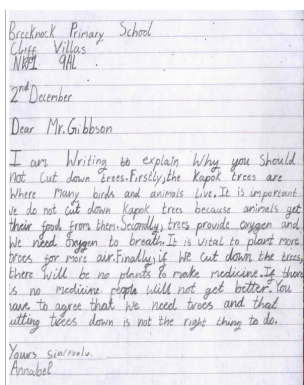 Brecknock Primary School
Cliff Villas
NW1 9AL
2nd December
Dear Mr.Gibbson
I am Writing to explain Why you Should
not cut down trees.Firstly,the Kapok trees are
Where Many birds and animals live.It is important
we do not cut down Kapok trees because animals get
their food from them.Secondly, trees provide oxygen and
we need oxygen to breath.It is vital to plant more
trees for more air.Finally,if we cut down the trees,
there will be no plants to make medicine.If there
is no medicine people will not get better.You
have to agree that we need trees and that
cutting trees down is not the right thing to do.
Yours sincerely.
Annabel